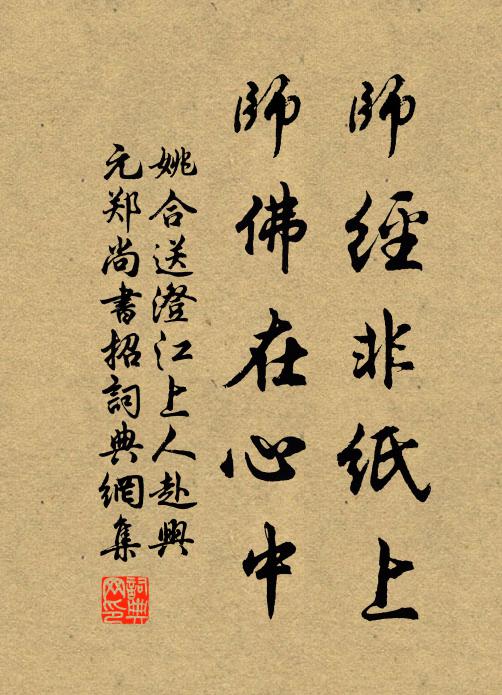 師經非紙上
師佛在心中
姚合送澄江上人赴興
元郑尚書招詞典網集
詞典
网印